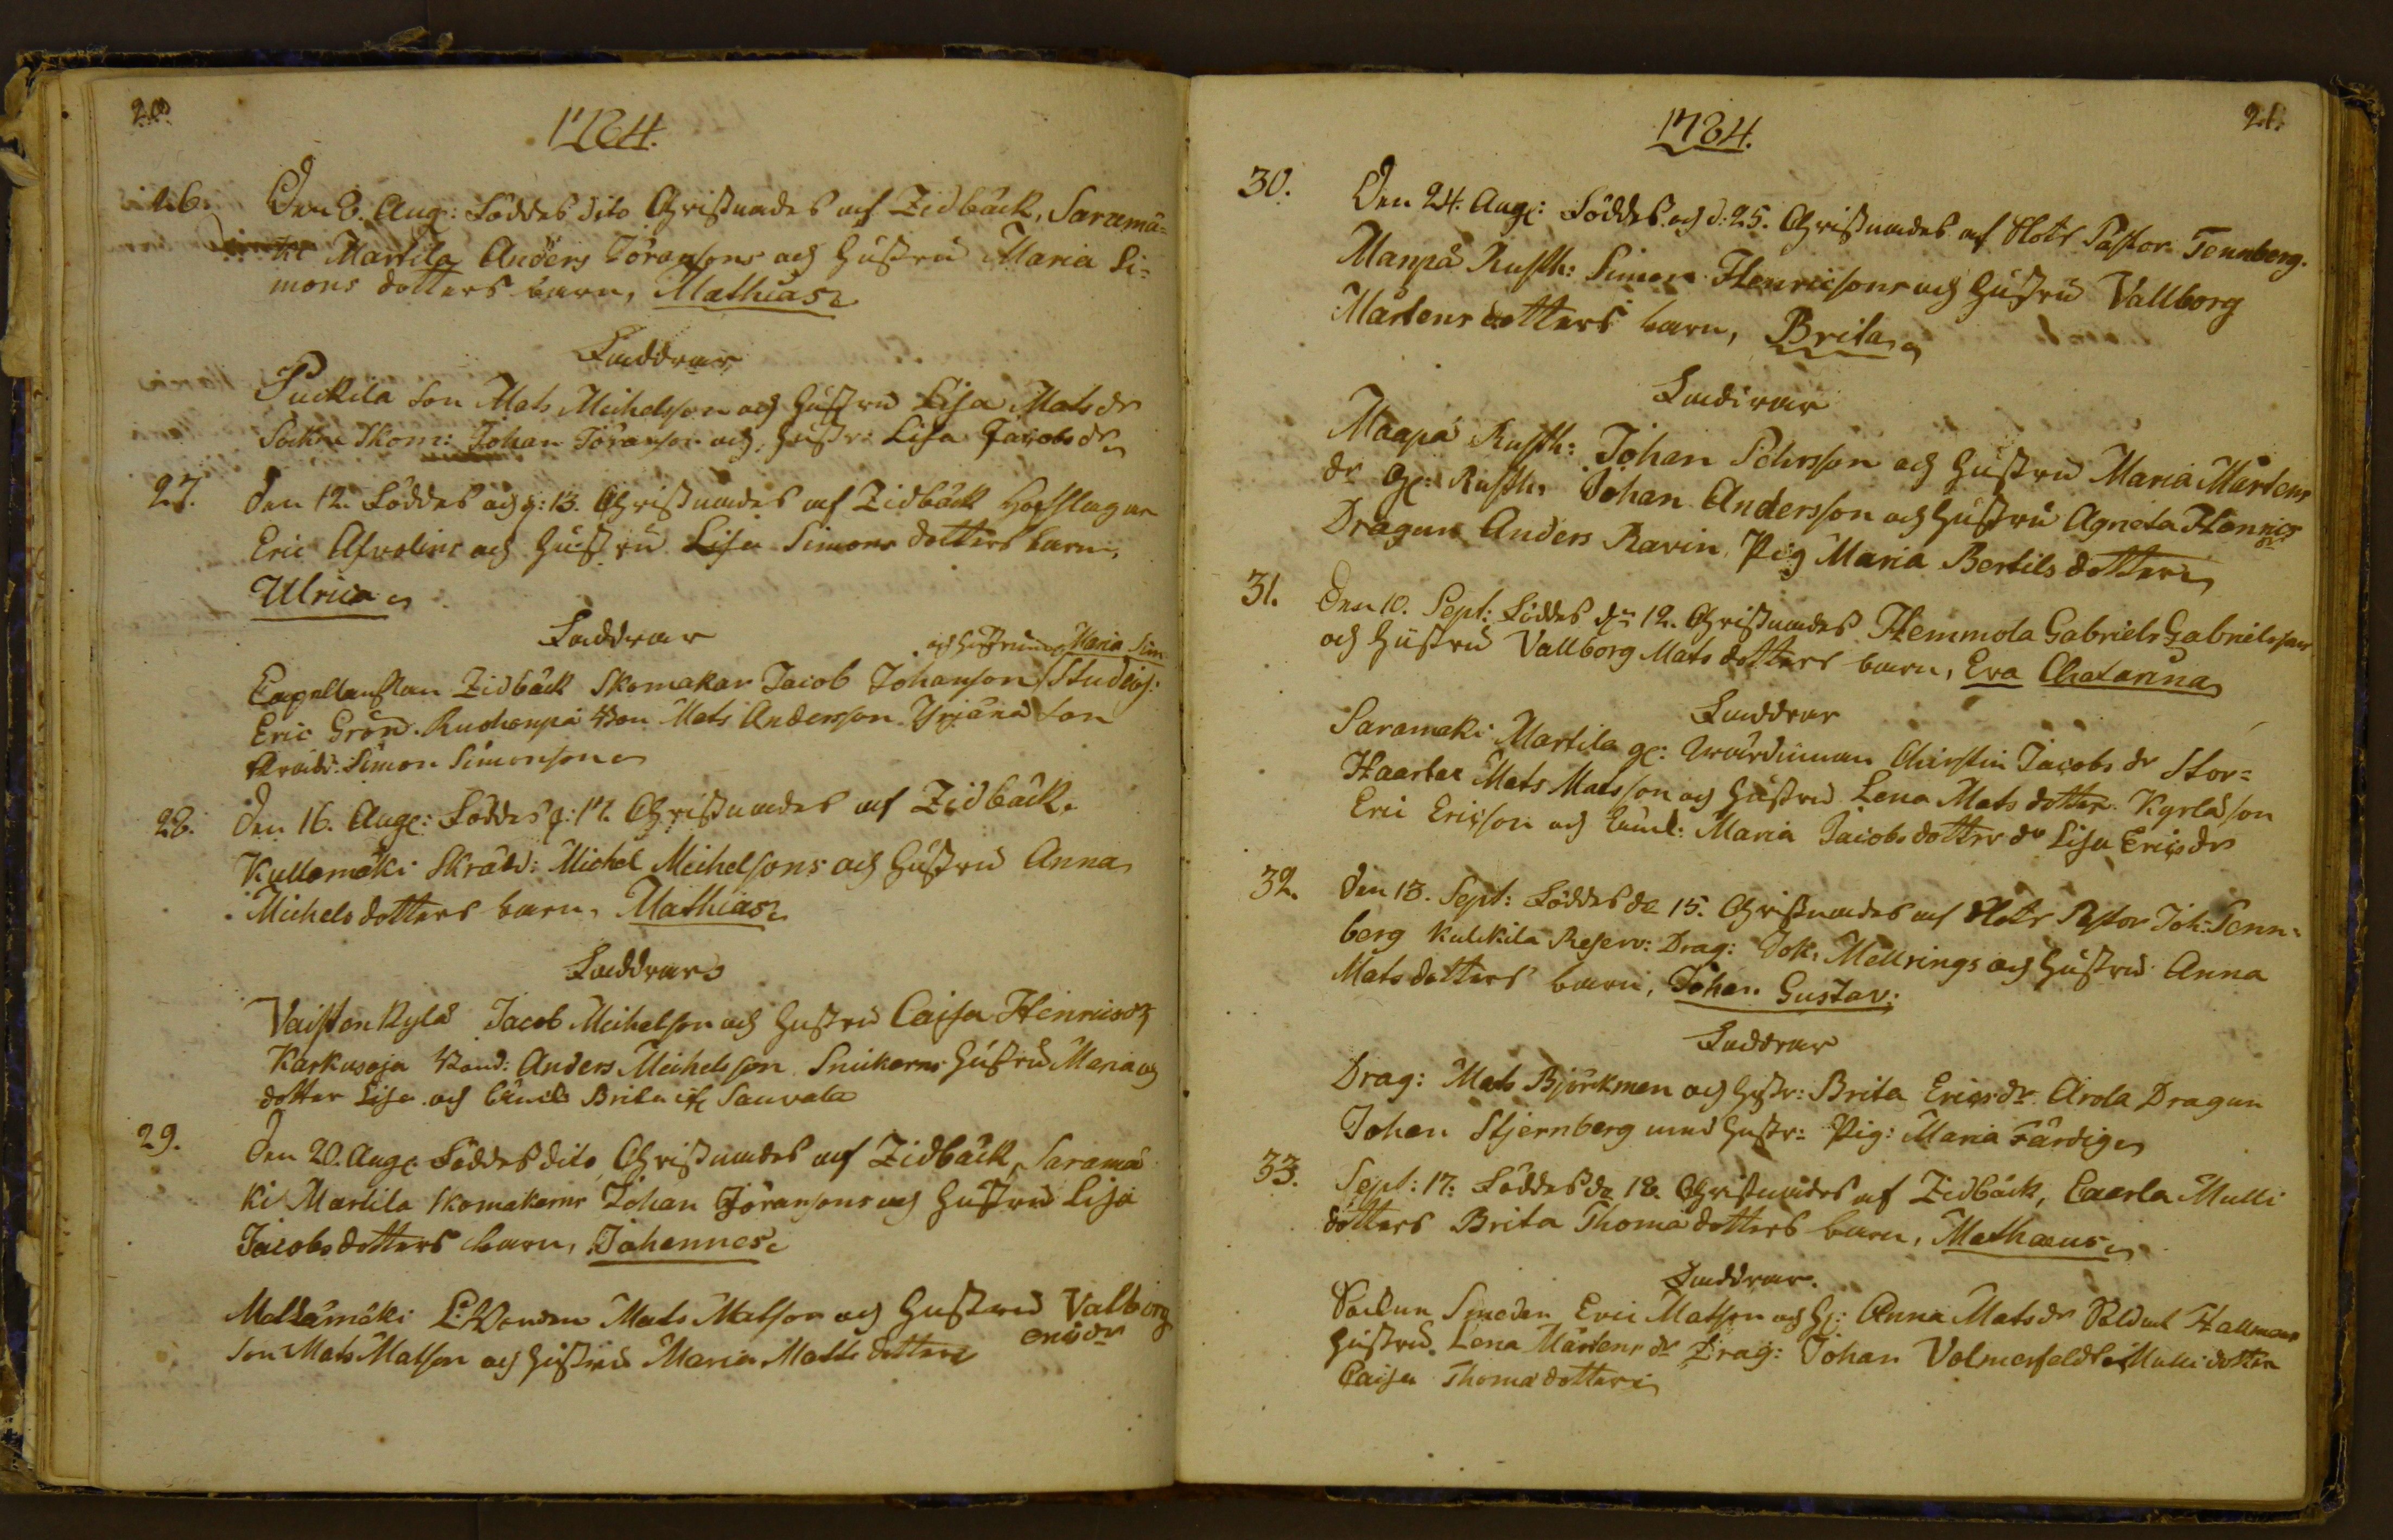 20.
1784.
26. Den 8. Aug: Föddes dito Christnades af Zidbäck, Saramä-
ki Martila Anders Jöransons och Hustru Maria Si-
mons dotters barn, Mathias
Faddrar
Puckila son Mats Michelsson och Hustru Lisa Mats dr
Skom: Johan Töranson och Hustr: Lisa Jacobs dr
27. Den 12. Föddes och d: 13. Christnades af Zidbäck Hofslagar
Eric Afvelins och Hustru Lisa Simons dotters barn,
Ulrica
Faddrar
och hustrun Maria Sim
Capellanskan Zidbäck Skomakar Jacob Johanson Studios:
Eric Grön. Ruohonpä Bon Mats Andersson Yrjänä son
Simon Simonson
28. Den 16. Aug: Föddes d: 17. Christnades af Zidbäck.
Kullamäki Skräd: Michel Michelsons och Hustru Anna
Michels dotters barn, Mathias
Faddrar
Vaisten Kylä Jacob Michelson och Hustru Caisa Henrics dr
Karkusoja Bond: Anders Michelsson Snickarns Hustru Maria och
dotter Lisa och Brita if: Sauvala
29. Den 20. Aug: Föddes dito Christnades af Zidbäck, Saramä
ki Martila Skomakarns Johan Jöransons och Hustru Lisa
Jacobs dotters barn, Johannes
Mälkämäki Bonden Mats Matson och Hustru Valborg
Erics dr
son Mats Matson och Hustru Maria Matts dotter
21.
1784.
30. Den 24. Aug: Föddes och d: 25. Christnades af Slots Pastor Tennberg.
Manpä Rusth: Simon Henricsons och Hustru Vallborg
Mårtens dotters barn, Brita
Faddrar
Maapä Rusth: Johan Pehrsson och Hustru Maria Mårtens
dr gl: Rusth: Johan Andersson och Hustru Agneta Henrics
dr
Dragun Anders Ravin, Pig Maria Bertils dotter
31. Den 10. Sept: Föddes dn 12. Christnades Hemmola Gabriels Gabrielsons
och Hustru Vallborg Mats dotters barn, Eva Chatarina
Faddrar
Saramäki Martila gl: Wärdinnan Christin Jacobs dr Stor-
Haartee Mats Matsson och Hustru Lena Mats dotter. Kyrlä son
Eric Ericsson och Maria Jacobs dotter dr Lisa Erics dr
32. Den 13. Sept: Föddes de 15. Christnades af Slots Pastor Joh: Tenn-
berg Kulckila Reserv: Drag: Joh: Mellrings och Hustru Anna
Mats dotters barn, Johan Gustav:
Faddrar
Drag: Mats Björckman och Hustr: Brita Erics dr Arola Dragun
Johan Stjernberg med Hustr: Pig: Maria Färdig
33. Sept: 17: Föddes de 18. Christnades af Zidbäck, Caerla Mulli
dotters Brita Thomä dotters barn, Mathaeus
Faddrar.
Smeden Eric Matson och Hj: Anna Mats dr Soldat Hallmans
Hustru Lena Mårtens dr Drag: Johan Volmerfeldt Mulli dotter
Caisa Thomä dotter